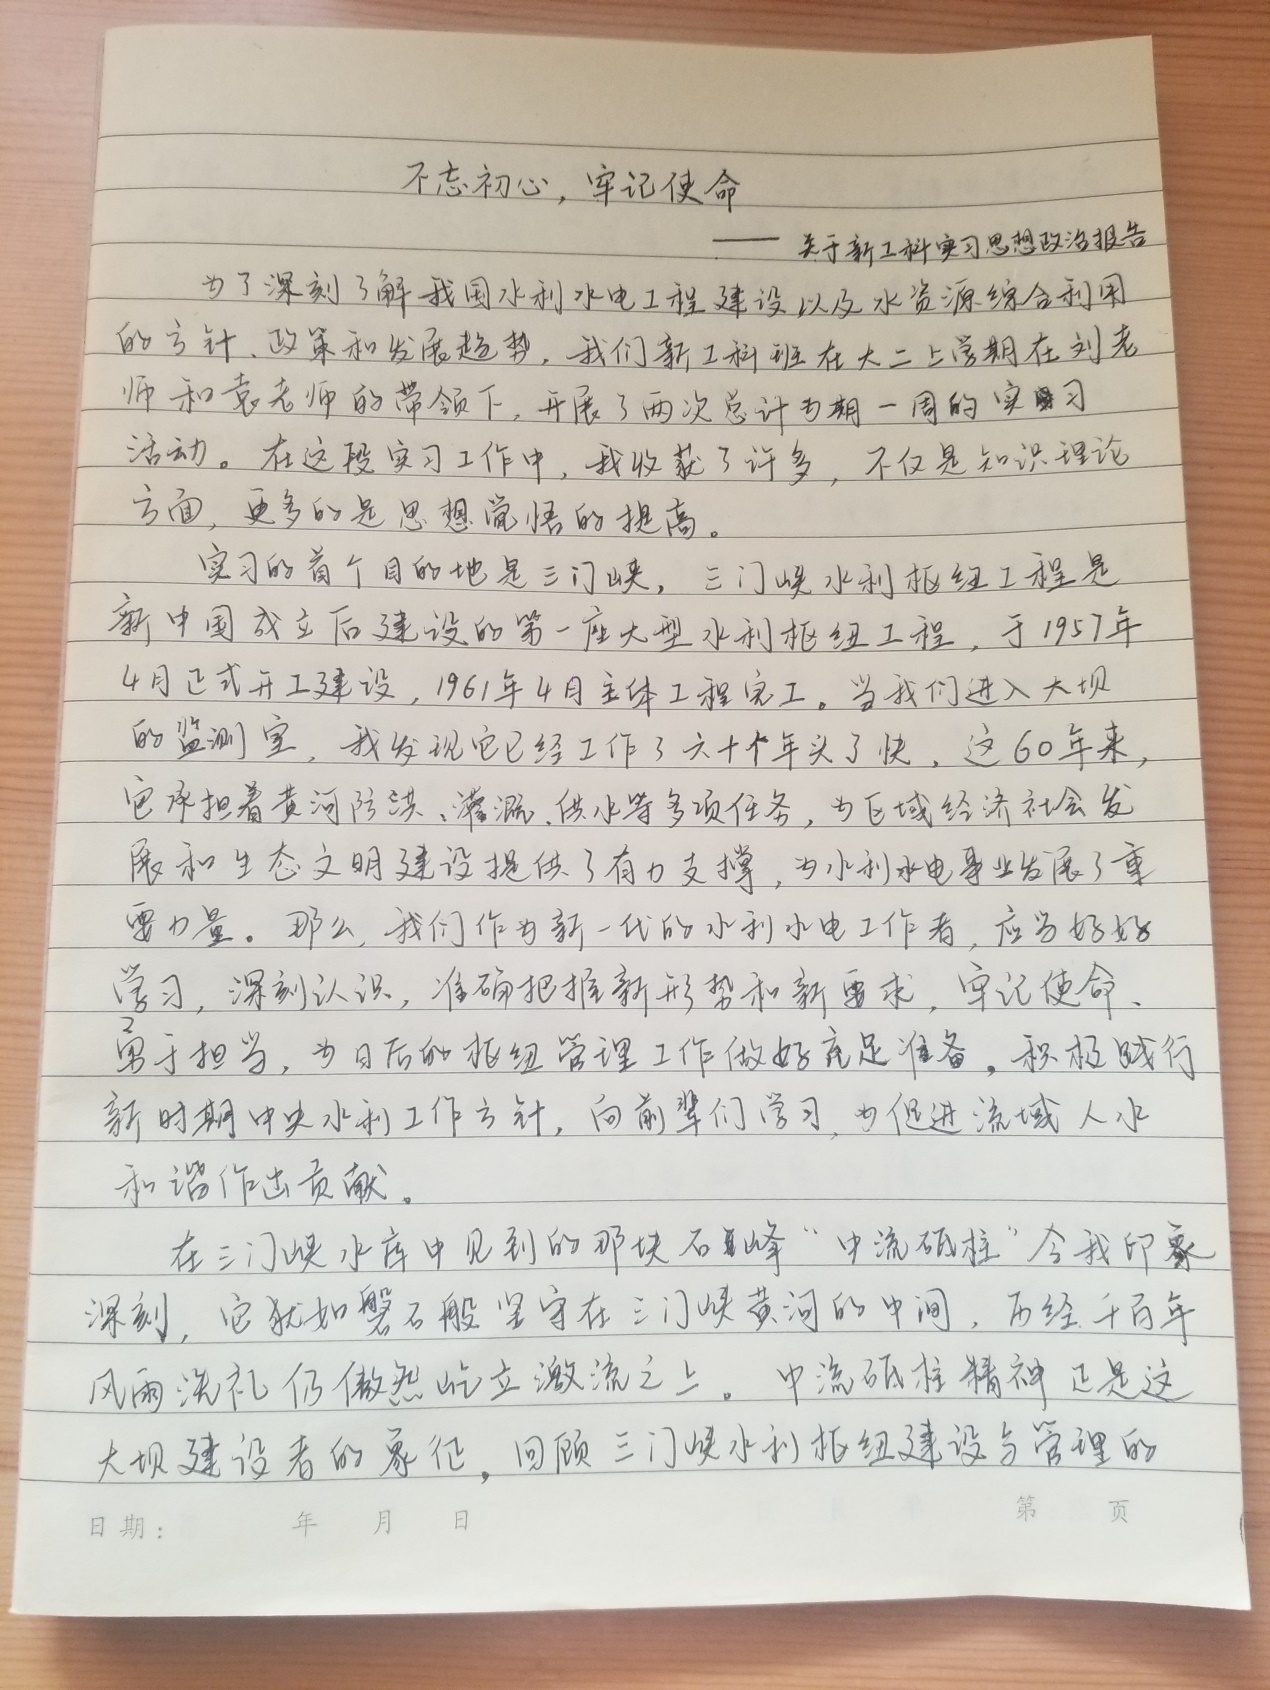 不忘初心，牢记使命
—— 关于新工科实习思想政治报告
为了深刻了解我国水利水电工程建设以及水资源综合利用
的方针、政策和发展趋势，我们新工科班在大二上学期在刘老
师和袁老师的带领下，开展了两次总计为期一周的实习
活动。在这段实习工作中，我收获了许多，不仅是知识理论
方面，更多的是思想觉悟的提高。
实习的首个目的地是三门峡，三门峡水利枢纽工程是
新中国成立后建设的第一座大型水利枢纽工程，于1957年
4月正式开工建设，1961年4月主体工程完工。当我们进入大坝
的监测室，我发现它已经工作了六十个年头了快，这60年来，
它承担着黄河防洪、灌溉、供水等多项任务，为区域经济社会发
展和生态文明建设提供了有力支撑，为水利水电事业发展了重
要力量。那么，我们作为新一代的水利水电工作者，应当好好
学习，深刻认识，准确把握新形势和新要求，牢记使命、
勇于担当，为日后的枢纽管理工作做好充足准备。积极践行
新时期中央水利工作方针，向前辈们学习，为促进流域人水
和谐作出贡献。
在三门峡水库中见到的那块石峰“中流砥柱”令我印象
深刻，它犹如磐石般坚守在三门峡黄河的中间，历经千百年
风雨洗礼仍傲然屹立激流之上。中流砥柱精神正是这
大坝建设者的象征。回顾三门峡水利枢纽建设与管理的
日期： 年 月 日 第 页